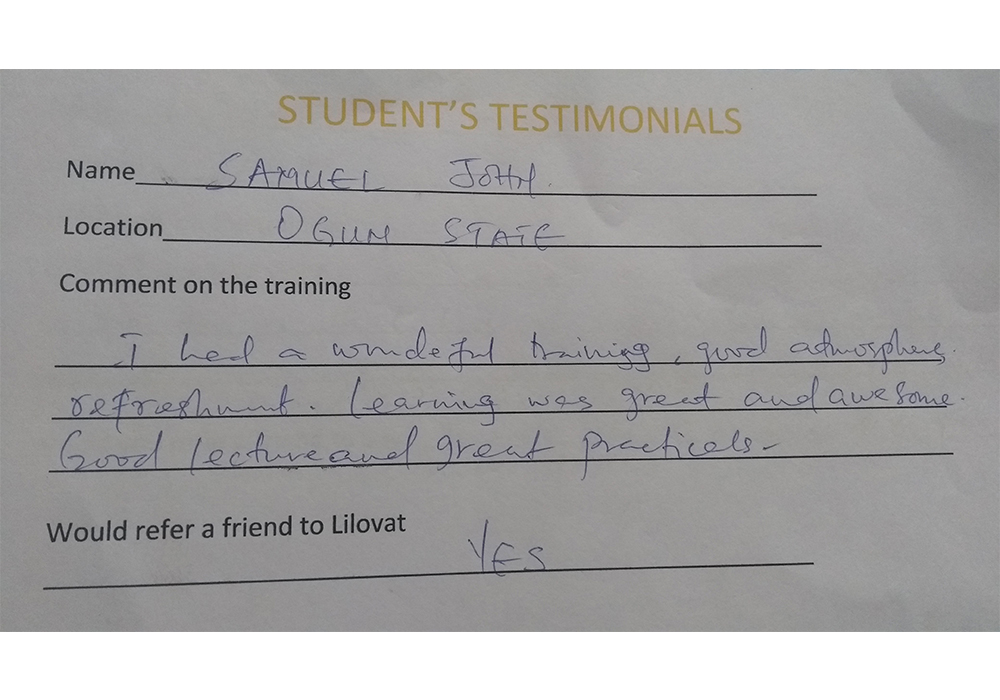 STUDENT'S TESTIMONIALS
Name SAMUEL JOHN.
Location OGUN STATE
Comment on the training
I had a wondeful training, good atmosphere.
refreshment. Learning was great and awesome.
Good lecture and great practicals-
Would refer a friend to Lilovat
YES